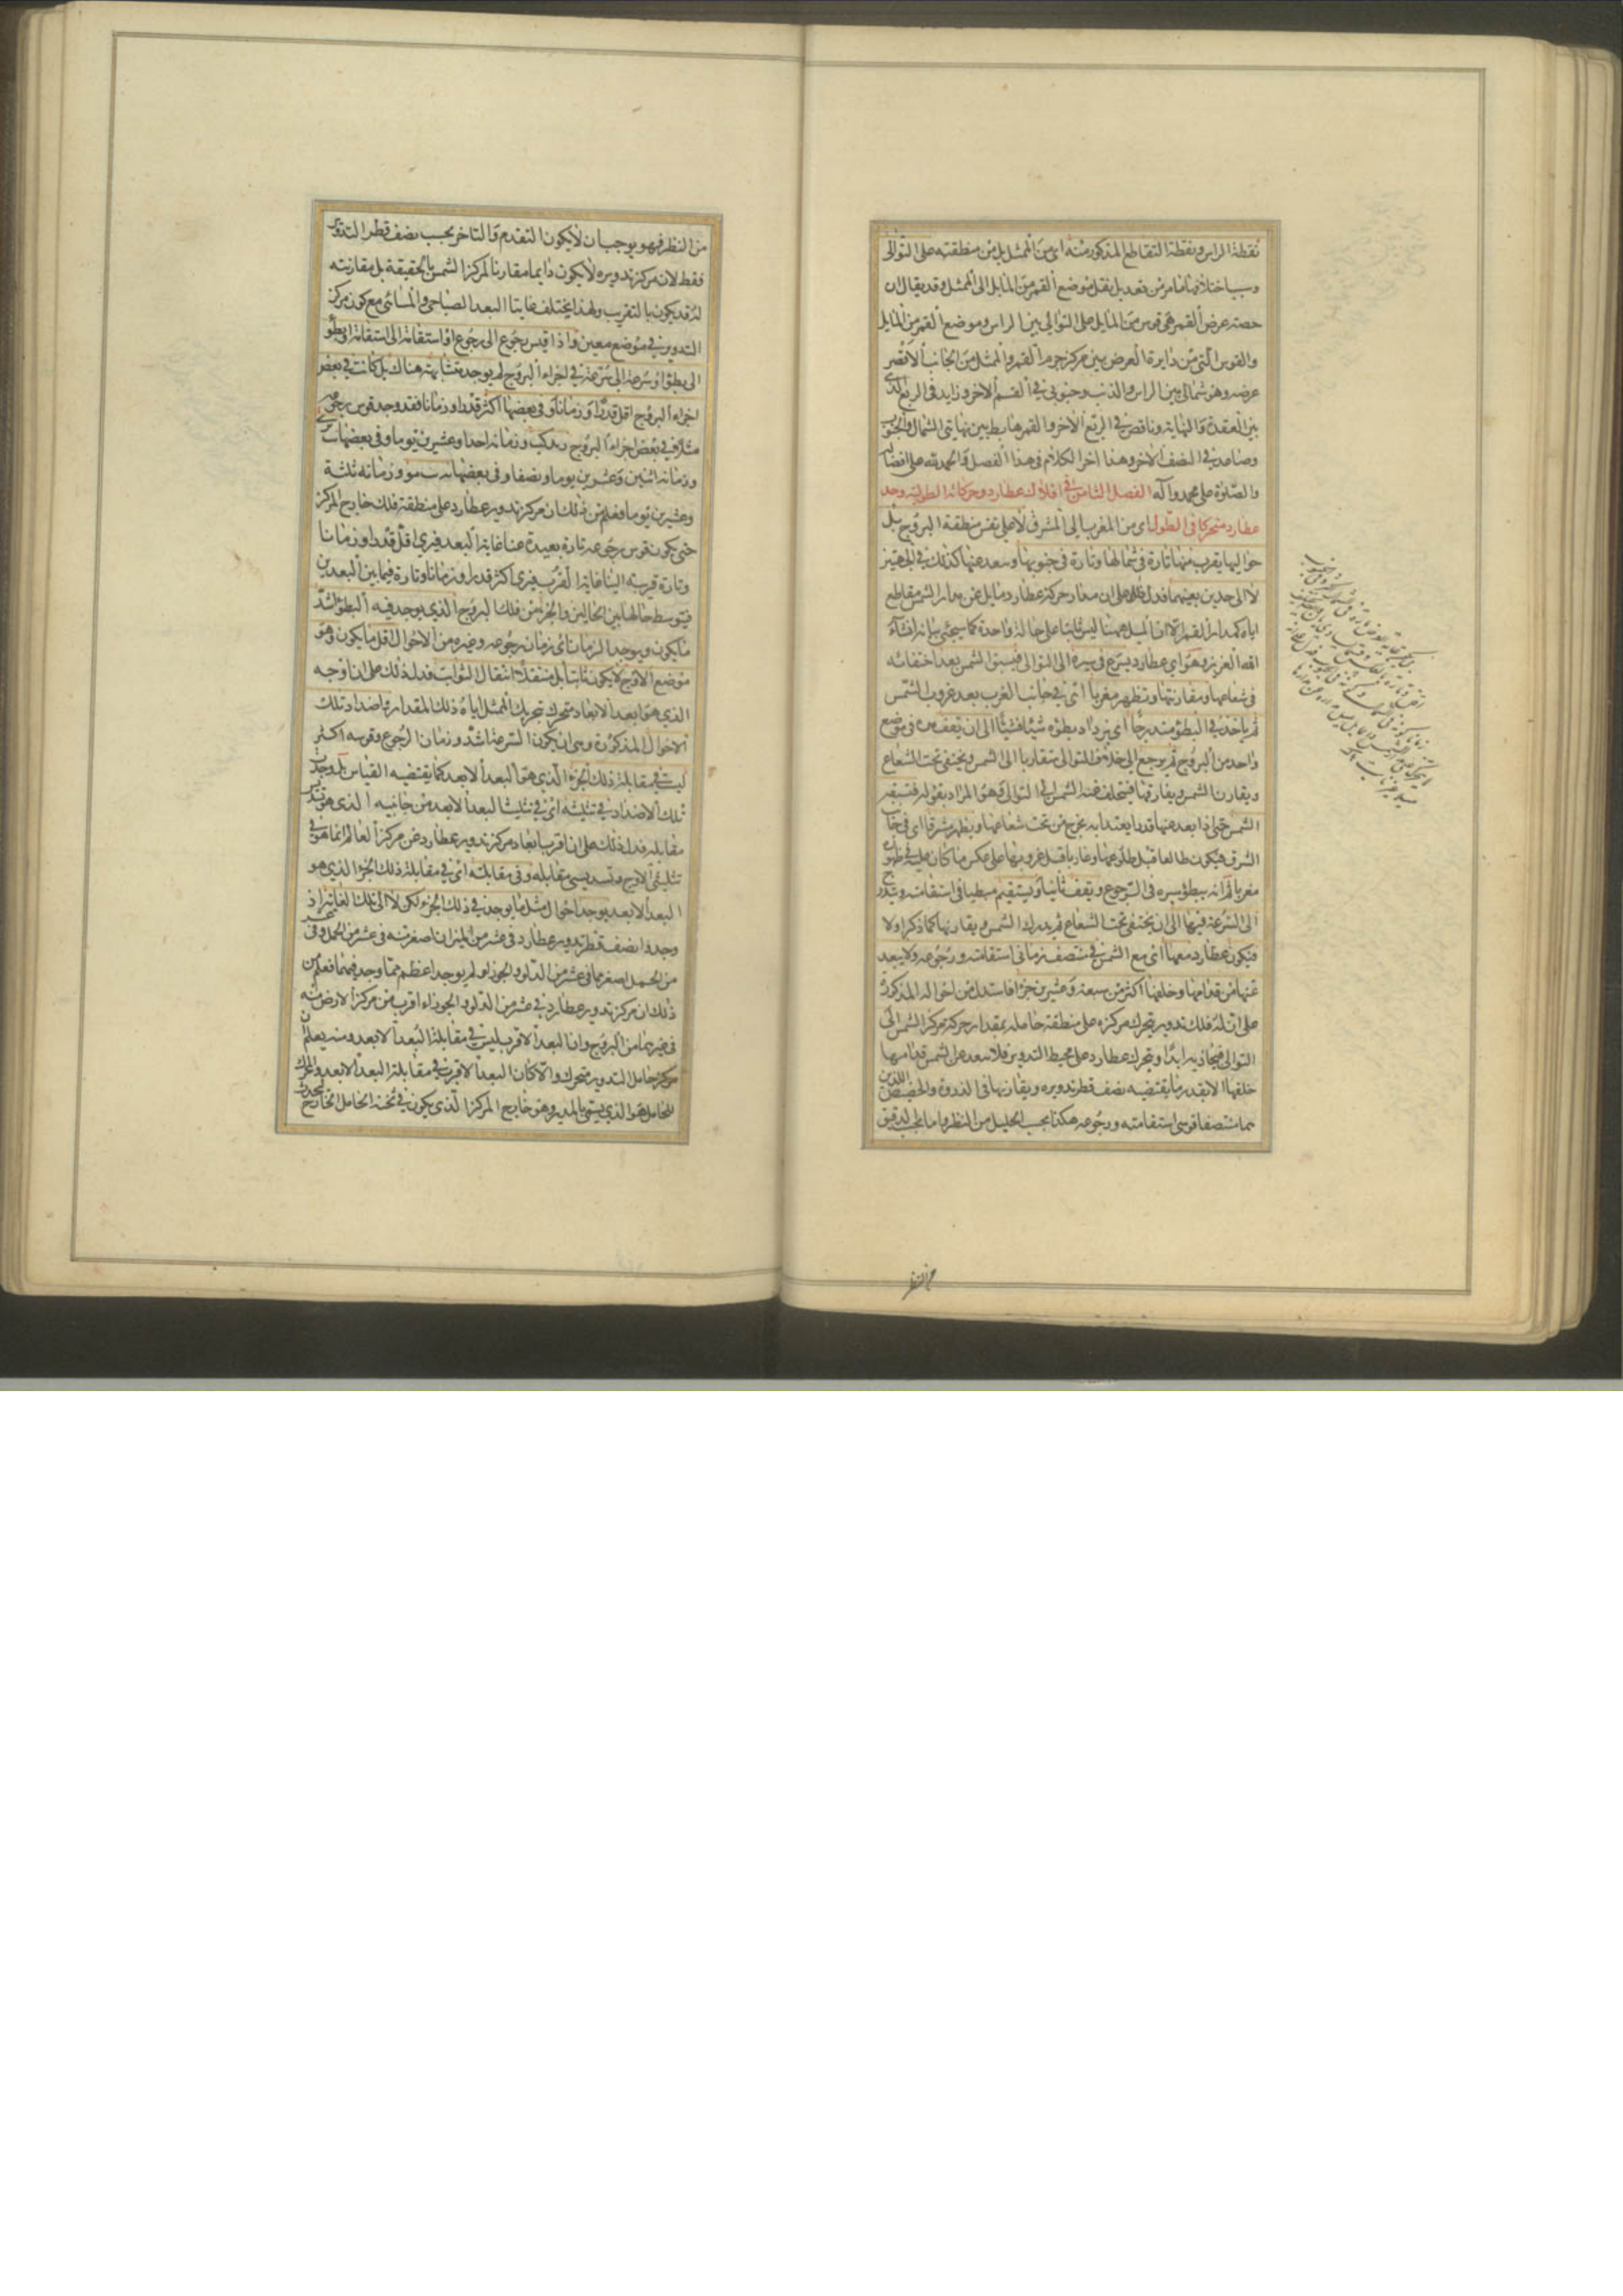 نقطة الراس ونقطة التقاطع المذكور منه اى من الممثل بل من منطقته على التوالى
وسبب اختلافهما ما مر من تعديل نقل موضع القمر من المايل الى الممثل وقد يقال ان
حصة عرض القمر هى قوس من المايل على التوالى بين الراس وموضع القمر من المايل
والقوس التى من دايرة العرض بين مركز جرم القمر والممثل من الجانب الاقصر
عرضه وهو شمالى بين الراس والذنب وجنوبى فى القسم الاخر وزايد فى الربع الذى
بين العقدة والنهاية وناقص فى الربع الاخر والقمر هابط بين نهايتى الشمال والجنوب
وصاعد فى النصف الاخر وهذا اخر الكلام فى هذا الفصل والحمد لله على افضاله
والصلوة على محمد وآله الفصل الثامن فى افلاك عطارد وحركاته الطولية وجد
عطارد متحركا فى الطول اى من المغرب الى المشرق لا على نفس منطقة البروج بل
حواليها يقرب منها تارة فى شمالها وتارة فى جنوبها ويبعد عنها كذلك فى الجهتين
لا الى حدين بعينهما فدل ذلك على ان مدار مركز عطارد مايل عن مدار الشمس مقاطع
اياه كمدار القمر الا ان الميل ههنا ليس ثابتا على حالة واحدة كما سيجئ بيانه ان شآء
الله العزيز وهو اى عطارد يسرع فى سيره الى التوالى فيسبق الشمس بعد اختفائه
فى شعاعها ومقارنتها وتظهر مغربا اى فى جانب الغرب بعد غروب الشمس
ثم ياخذ فى البطؤ متدرجا اى يزداد بطؤه شيئا فشيئا الى ان يقف فى موضع
واحد من البروج ثم يرجع الى خلاف التوالى متقاربا الى الشمس ويختفى تحت الشعاع
ويقارن الشمس ويفارقها فيتخلف عنه الشمس الى التوالى وهو المراد بقوله فتسبقه
الشمس حتى اذا بعد عنها قدرا يعتد به يخرج من تحت شعاعها ويظهر مشرقا اى فى جانب
الشرق فيكون طالعا قبل طلوعها وغاربا قبل غروبها على عكس ما كان عليه فى ظهوره
مغربا ثم انه يبطؤ سيره فى الرجوع ويقف ثانيا ويستقيم مبطيا فى استقامته ويتدرج
الى السرعة فيها الى ان يختفى تحت الشعاع ثم يدرك الشمس ويقارنها كما ذكر اولا
فيكون عطارد معها اى مع الشمس فى منتصف زمانى استقامته ورجوعه ولا يبعد
عنها من قدامها وخلفها اكثر من سبعة وعشرين جزءا فاستدل من احواله المذكورة
على ان له فلك تدوير يتحرك مركزه على منطقة حامله بمقدار حركة مركز الشمس الى
التوالى فيحاذيه ابدا ويتحرك عطارد على محيط التدوير فلا يبعد عن الشمس قدامها
خلفها الا بقدر ما يقتضيه نصف قطر تدويره ويقارنها فى الذروة والحضيض اللذين
هما منتصفا قوسى استقامته ورجوعه هكذا بحسب الجليل من النظر واما بحسب الدقيق
من النظر
من النظر فهو يوجب ان لا يكون التقدم والتاخر بحسب نصف قطر التدوير
فقط لان مركز تدويره لا يكون دايما مقارنا لمركز الشمس بالحقيقة بل مقارنته
له قد يكون بالتقريب ولهذا يختلف غايتا البعد الصباحى والمسائى مع كون مركز
التدوير فى موضع معين واذا قيس رجوع الى رجوع او استقامة الى استقامة او بطؤ
الى بطؤ او سرعة الى سرعة فى اجزاء البروج لم يوجد متشابهة هناك بل كانت فى بعض
اجزاء البروج اقل قدرا وزمانا وفى بعضها اكثر قدرا وزمانا فقد وجد قوس رجوعه
مثلا فى بعض اجزاء البروج وزمانه احدا وعشرين يوما وفى بعضها
وزمانه اثنين وعشرين يوما ونصفا وفى بعضها وزمانه ثلثة
وعشرين يوما فعلم من ذلك ان مركز تدوير عطارد على منطقة فلك خارج المركز
حتى يكون قوس رجوعه تارة بعيدة عنا غاية البعد فيرى اقل قدرا وزمانا
وتارة قريبة الينا غاية القرب فيرى اكثر قدرا وزمانا وتارة فيما بين البعدين
فيتوسط حالها بين الحالين والجزء من فلك البروج الذى يوجد فيه البطؤ اشد
ما يكون ويوجد الزمان اى زمان رجوعه وغيره من الاحوال اقل ما يكون وهو
موضع الاوج لا يكون ثابتا بل منتقلا انتقال الثوابت فدل ذلك على ان اوجه
الذى هو ابعد الابعاد متحرك بتحريك الممثل اياه ذلك المقدار واضداد تلك
الاحوال المذكورة وهى ان يكون السرعة اشد وزمان الرجوع وقوسه اكثر
ليست فى مقابلة ذلك الجزء الذى هو البعد الابعد كما يقتضيه القياس بل وجدت
تلك الاضداد فى تثليثه اى فى تثليث البعد الابعد من جانبيه الذى هو تسديس
مقابله فدل ذلك على ان اقرب ابعاد مركز تدوير عطارد عن مركز العالم انما هو فى
تثليثى الاوج وتسديسى مقابله وفى مقابلته اى فى مقابلة ذلك الجزء الذى هو
البعد الابعد يوجد احوال مثل ما يوجد فى ذلك الجزء لكن لا الى تلك الغاية اذ
وجدوا نصف قطر تدوير عطارد فى عشر من الميزان اصغر منه فى عشر من الحمل وفى
من الحمل اصغر مما فى عشر من الدلو والجوزاء ولم يوجد اعظم مما وجد فيهما فعلم من
ذلك ان مركز تدوير عطارد فى عشر من الدلو والجوزاء اقرب من مركز الارض منه
فى غيرهما من البروج وان البعد الاقرب ليس فى مقابلة البعد الابعد ومنه يعلم ان
مركز حامل التدوير متحرك والا كان البعد الاقرب فى مقابلة البعد الابعد والمحرك
للحامل هو الذى يسمى بالمدير وهو خارج المركز الذى يكون فى ثخنه الحامل الخارج